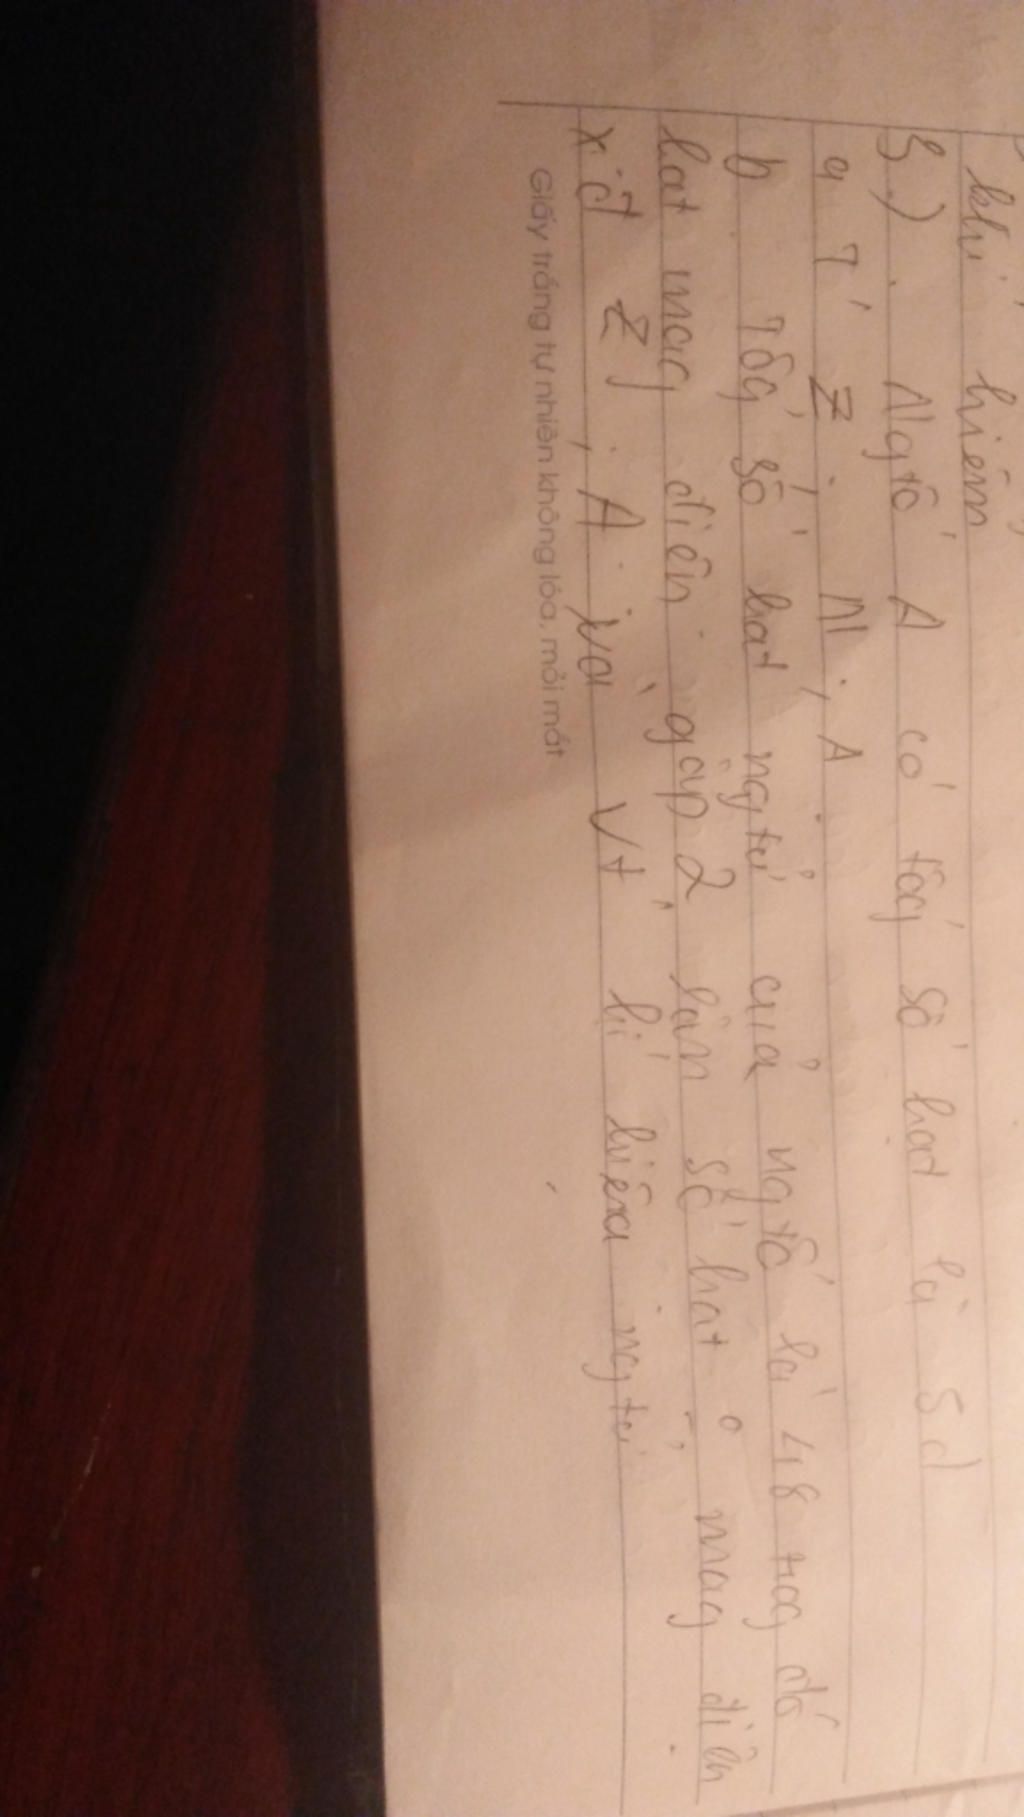 khí hiếm
3) Ngtố A có tổg số hạt là 5d
a T' Z ; N ; A
b Tổg số hạt ngtử của ngtố là 48 trog đó
hạt mag điện gấp 2 lần số hạt o mag điện
xđ Z ; A ; và vt kí hiệu ngtử
Giấy trắng tự nhiên không lóa, mỏi mắt